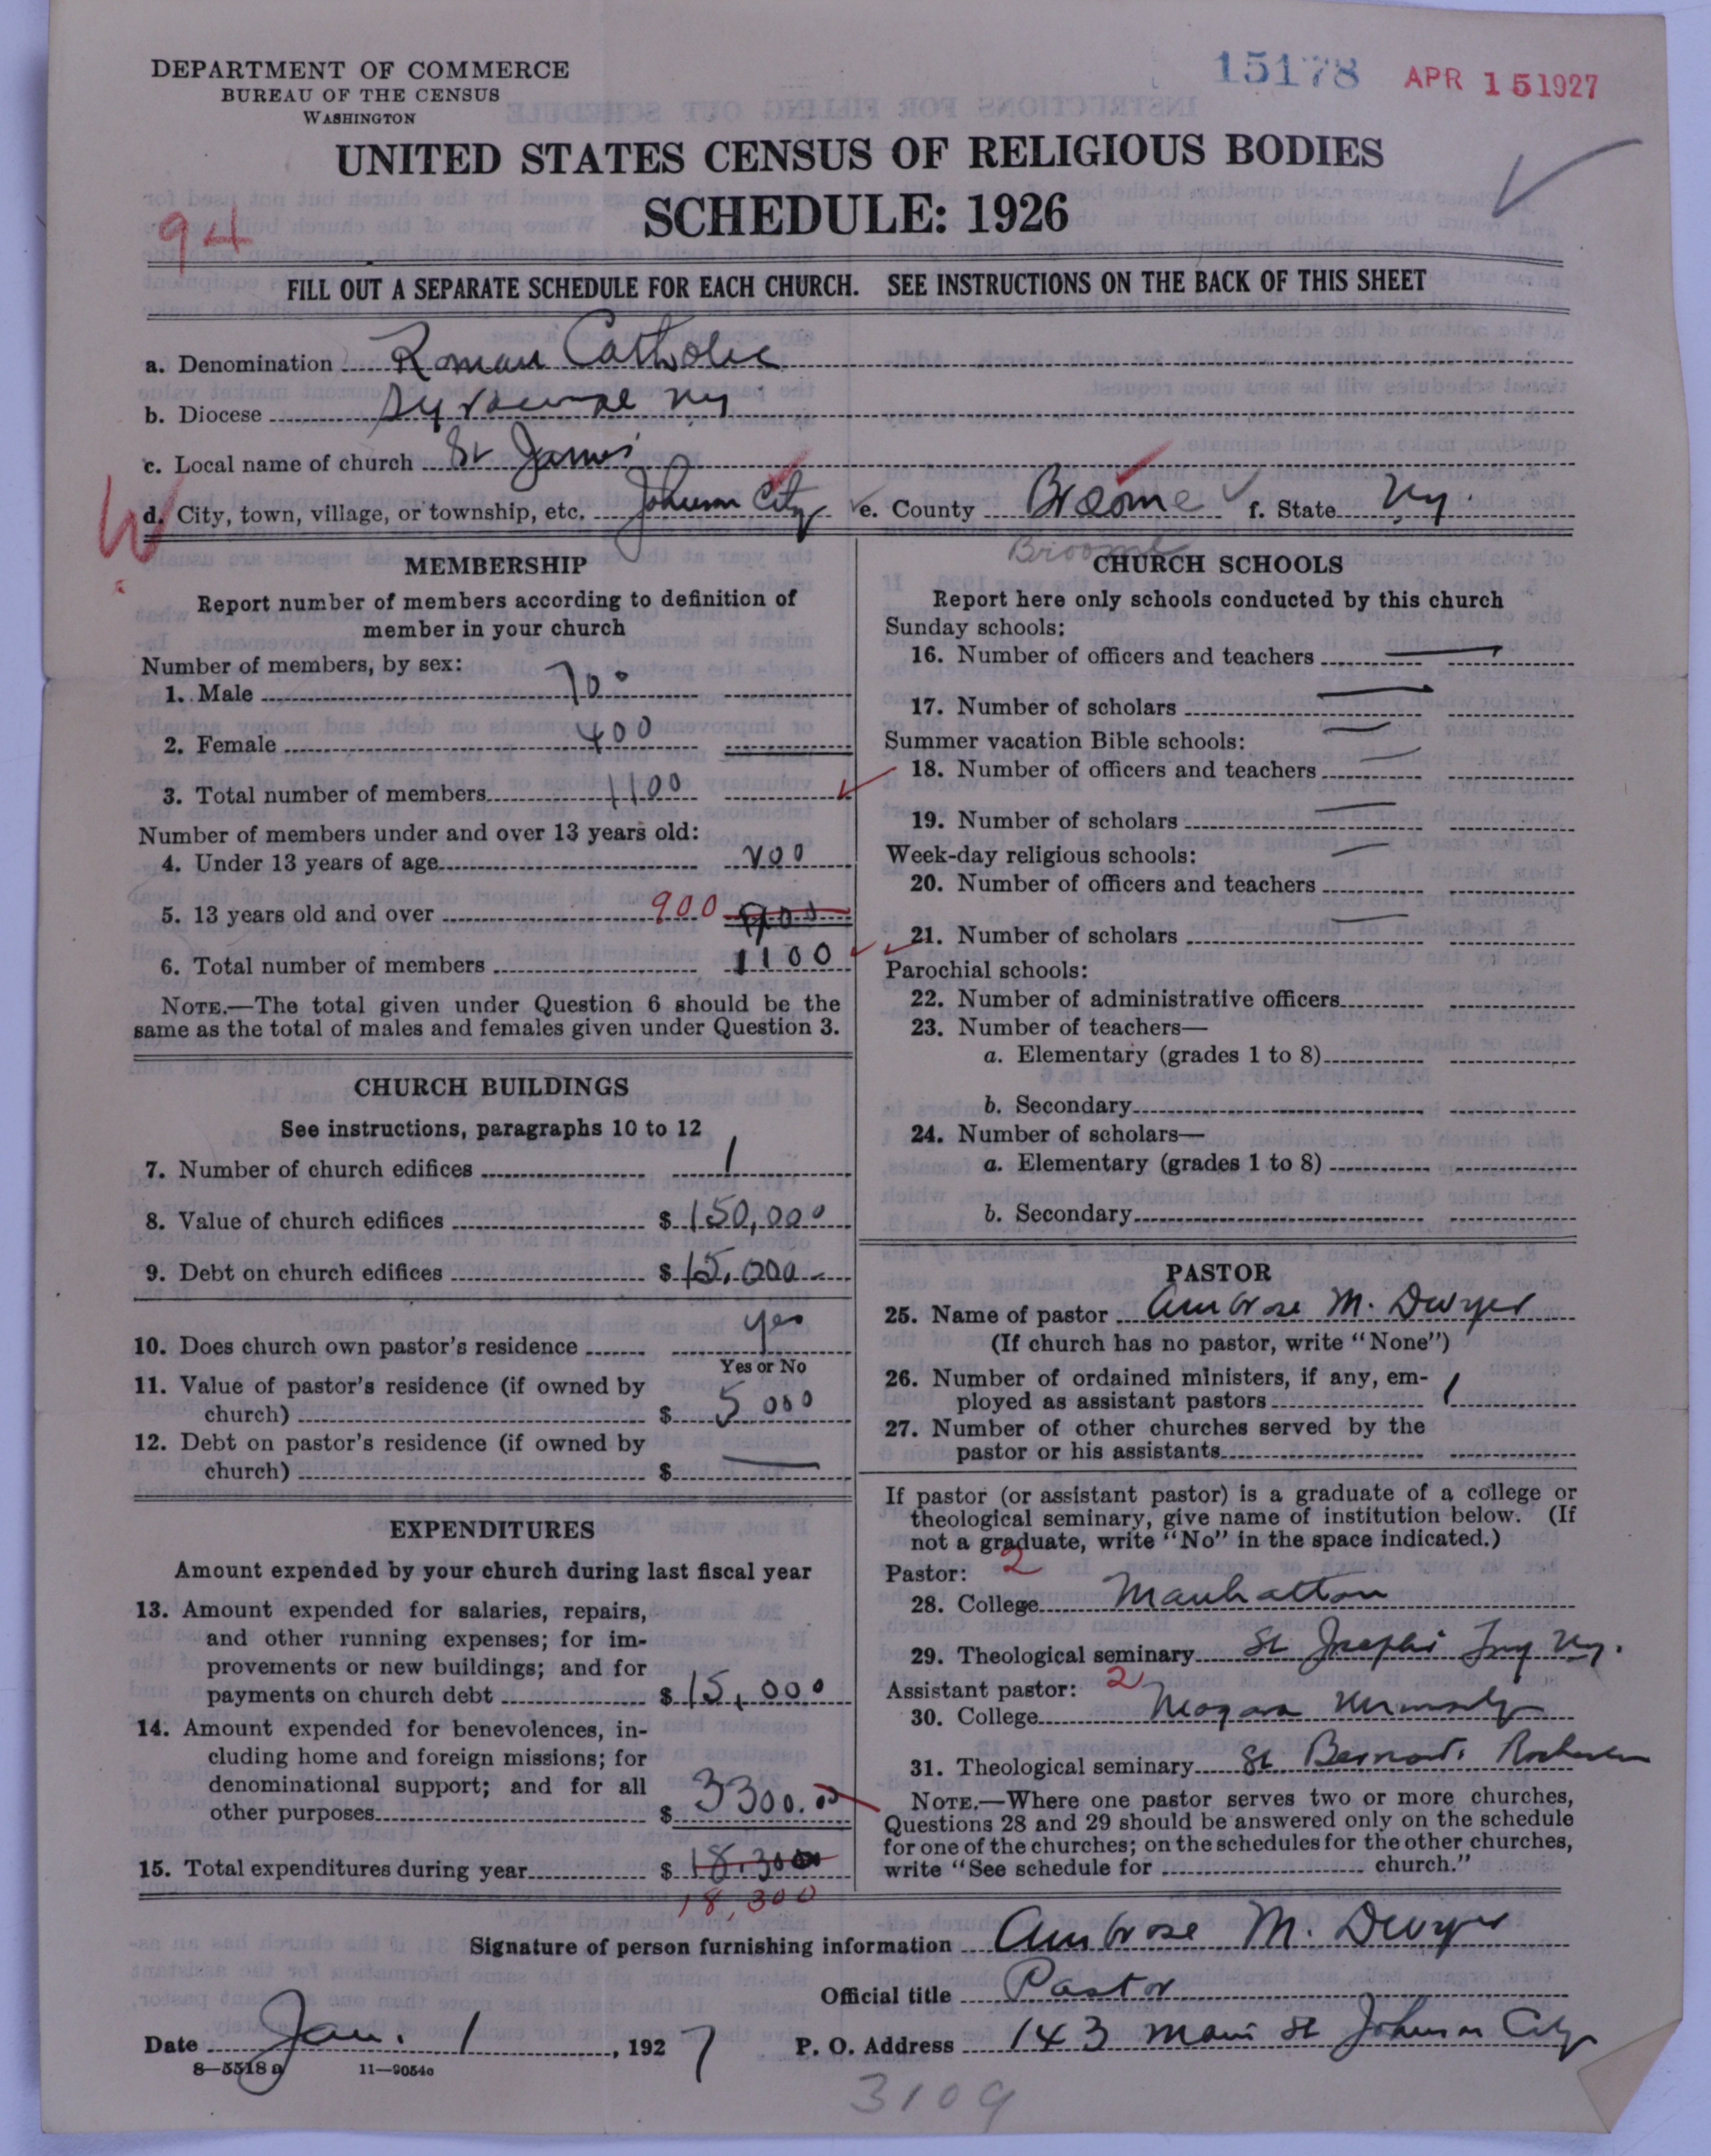 DEPARTMENT OF COMMERCE
BUREAU OF THE CENSUS
WASHINGTON
15178 APR 15 1927
UNITED STATES CENSUS OF RELIGIOUS BODIES
SCHEDULE: 1926
94
FILL OUT A SEPARATE SCHEDULE FOR EACH CHURCH. SEE INSTRUCTIONS ON THE BACK OF THIS SHEET
a. Denomination Roman Catholic
b. Diocese Syracuse Ny
c. Local name of church St James
d. City, town, village, or township, etc. Johnson City e. County Broome f. State Ny.
Broome
MEMBERSHIP
Report number of members according to definition of
member in your church
Number of members, by sex:
1. Male 700
2. Female 400
3. Total number of members 1100
Number of members under and over 13 years old:
4. Under 13 years of age 200
5. 13 years old and over 900 900
6. Total number of members 1100
NOTE.—The total given under Question 6 should be the
same as the total of males and females given under Question 3.
CHURCH BUILDINGS
See instructions, paragraphs 10 to 12
7. Number of church edifices 1
8. Value of church edifices $ 150,000
9. Debt on church edifices $ 15,000
10. Does church own pastor's residence yes
Yes or No
11. Value of pastor's residence (if owned by
church) $ 5000
12. Debt on pastor's residence (if owned by
church) $ —
EXPENDITURES
Amount expended by your church during last fiscal year
13. Amount expended for salaries, repairs,
and other running expenses; for im-
provements or new buildings; and for
payments on church debt $ 15,000
14. Amount expended for benevolences, in-
cluding home and foreign missions; for
denominational support; and for all
other purposes $ 3300.00
15. Total expenditures during year $ 18,300
18,300
CHURCH SCHOOLS
Report here only schools conducted by this church
Sunday schools:
16. Number of officers and teachers —
17. Number of scholars —
Summer vacation Bible schools: —
18. Number of officers and teachers —
19. Number of scholars —
Week-day religious schools: —
20. Number of officers and teachers
21. Number of scholars —
Parochial schools:
22. Number of administrative officers
23. Number of teachers—
a. Elementary (grades 1 to 8)
b. Secondary
24. Number of scholars—
a. Elementary (grades 1 to 8)
b. Secondary
PASTOR
25. Name of pastor Ambrose M. Dwyer
(If church has no pastor, write "None")
26. Number of ordained ministers, if any, em-
ployed as assistant pastors 1
27. Number of other churches served by the
pastor or his assistants
If pastor (or assistant pastor) is a graduate of a college or
theological seminary, give name of institution below. (If
not a graduate, write "No" in the space indicated.)
Pastor: 2
28. College Manhattan
29. Theological seminary St Josephs Troy Ny.
Assistant pastor: 2
30. College Niagara University
31. Theological seminary St Bernards Rochester
NOTE.—Where one pastor serves two or more churches,
Questions 28 and 29 should be answered only on the schedule
for one of the churches; on the schedules for the other churches,
write "See schedule for church."
Signature of person furnishing information Ambrose M. Dwyer
Official title Pastor
Date Jan. 1, 1927 P. O. Address 143 Main St Johnson City
8—5518a 11—9054a
3109